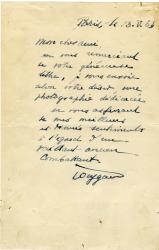 Paris, le
Mon cher ami
en vous remerciant
de votre généreuse
lettre, je vous envoie
selon votre désir, une
photographie dédicacée
en vous assurant
de mes meilleurs
et dévoués sentiments
à l'égard d'un
vaillant ancien
Combattant
Weygand